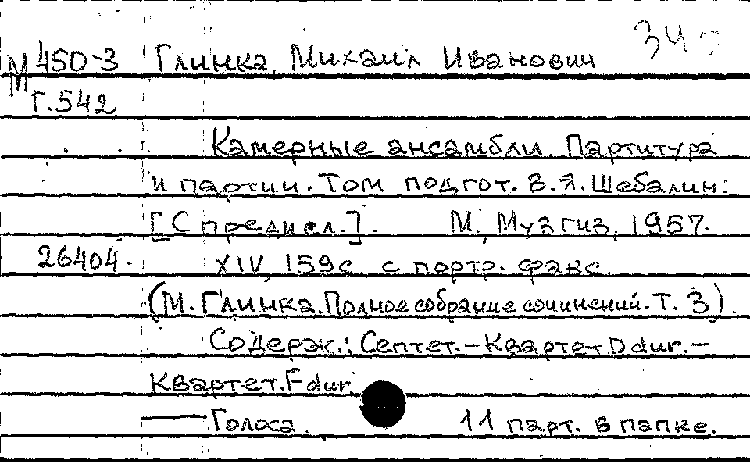 М 450-3 Глинка, Михаил Иванович
Г.542
Камерные ансамбли. Партитура
и партии. Том подгот. В.Я. Шебалин.
[С предисл.]. М., Музгиз, 1957.
26404. XIV, 159с. с портр. факс.
(М. Глинка. Полное собрание сочинений. Т. 3)
Содерж.: Септет. - Квартет D dur. -
Квартет. F dur
— Голоса. 11 парт. в папке.